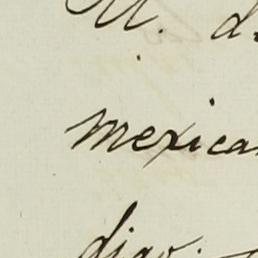 M. d
mexica
digo.